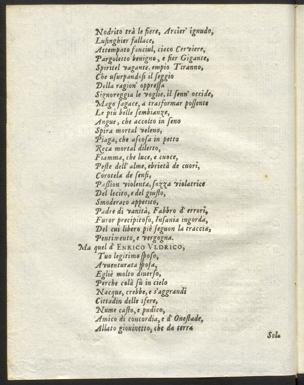 Nodrito trà le fiere, Arcier' ignudo,
Lusinghier fallace,
Attempato fanciul, cieco Cerviere,
Pargoletto benigno, e fier Gigante,
Spiritel vagante, empio Tiranno,
Che usurpandosi il seggio
Della ragion' oppressa
Signoreggia le voglie, il senn' occide,
Mago sagace, a trasformar possente
Le più belle sembianze,
Angue, che accolto in seno
Spira mortal veleno,
Piaga, che ascosa in petto
Reca mortal diletto,
Fiamma, che luce, e cuoce,
Peste dell' alme, ebrietà de cuori,
Corotela de sensi,
Passion violenta, sozza violatrice
Del lecito, e del giusto,
Smoderato appetito,
Padre di vanità, Fabbro d' errori,
Furor precipitoso, Insania ingorda,
Del cui libero piè seguon la traccia,
Pentimento, e vergogna.
Ma quel d' ENRICO VLDRICO,
Tuo legitimo sposo,
Auuenturata sposa,
Egliè molto diuerso,
Perche colà sù in cielo
Nacque, crebbe, e s'aggrandì
Cittadin delle sfere,
Nume casto, e pudico,
Amico di concordia, e d' Onestade,
Alato giouinetto, che da terra
Sola